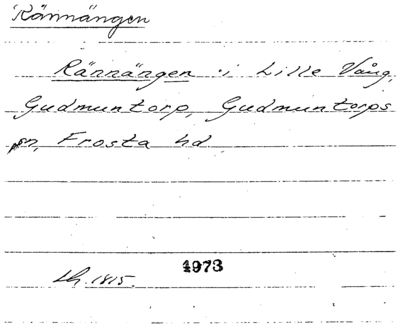 Rännängen
Rännängen i Lille Vång,
Gudmuntorp, Gudmuntorps
sn, Frosta hd
1973
Lh. 1815.